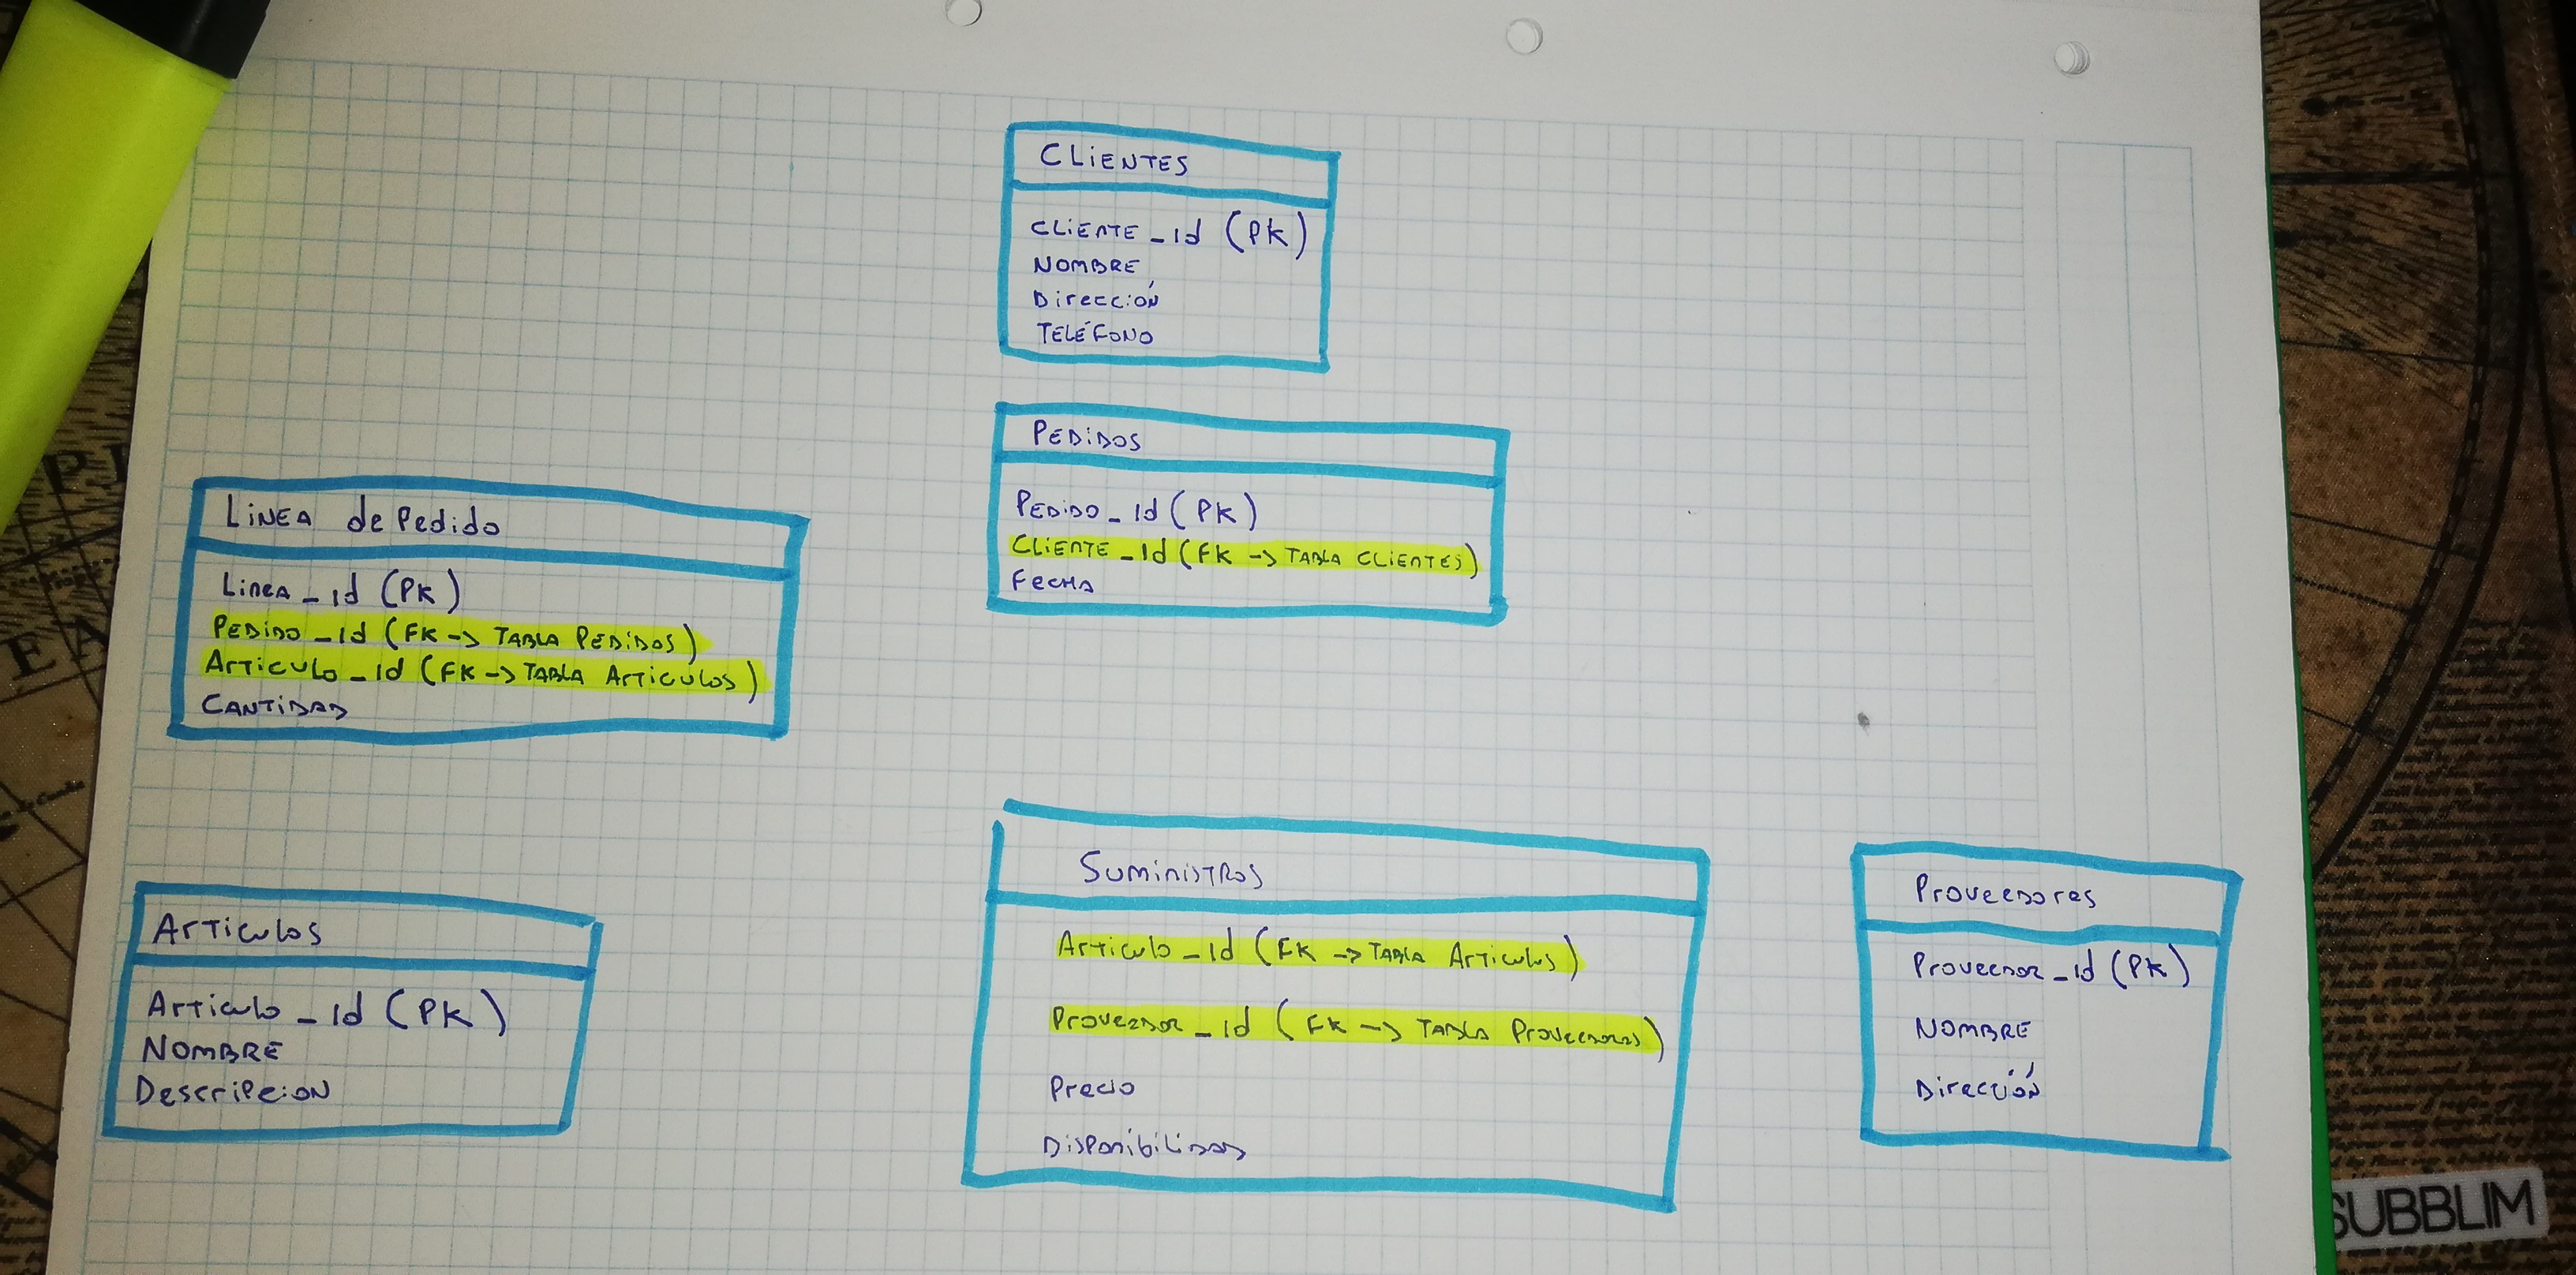 CLIENTES
CLIENTE_Id (PK)
NOMBRE
Dirección
TELÉFONO
PEDIDOS
PEDIDO_Id (PK)
CLIENTE_Id (FK -> TABLA CLIENTES)
FECHA
LINEA de Pedido
Linea_Id (PK)
PEDIDO_Id (FK -> TABLA PEDIDOS)
Articulo_Id (FK -> TABLA Articulos)
CANTIDAD
Articulos
Articulo_Id (PK)
NOMBRE
Descripcion
Suministros
Articulo_Id (FK -> TABLA Articulos)
Proveedor_Id (FK -> TABLA Proveedores)
Precio
Disponibilidad
Proveedores
Proveedor_Id (PK)
NOMBRE
Dirección
SUBBLIM